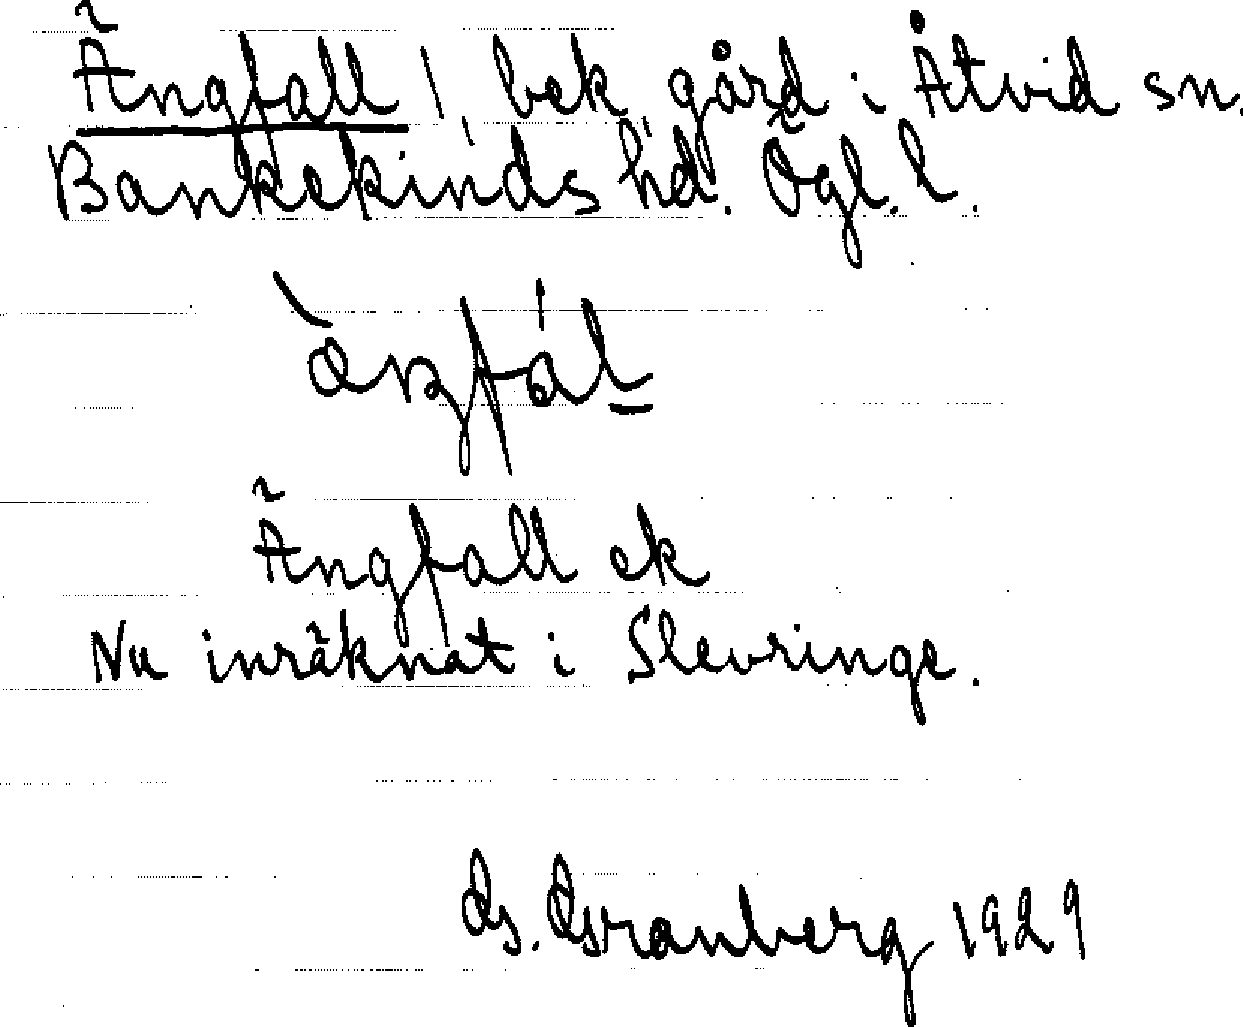 Ängfall / bek gård i Åtvid sn.
Bankekinds hd. Ögl. l.
Ängfall ek
Nu inräknat i Slevringe.
G. Granberg 1929